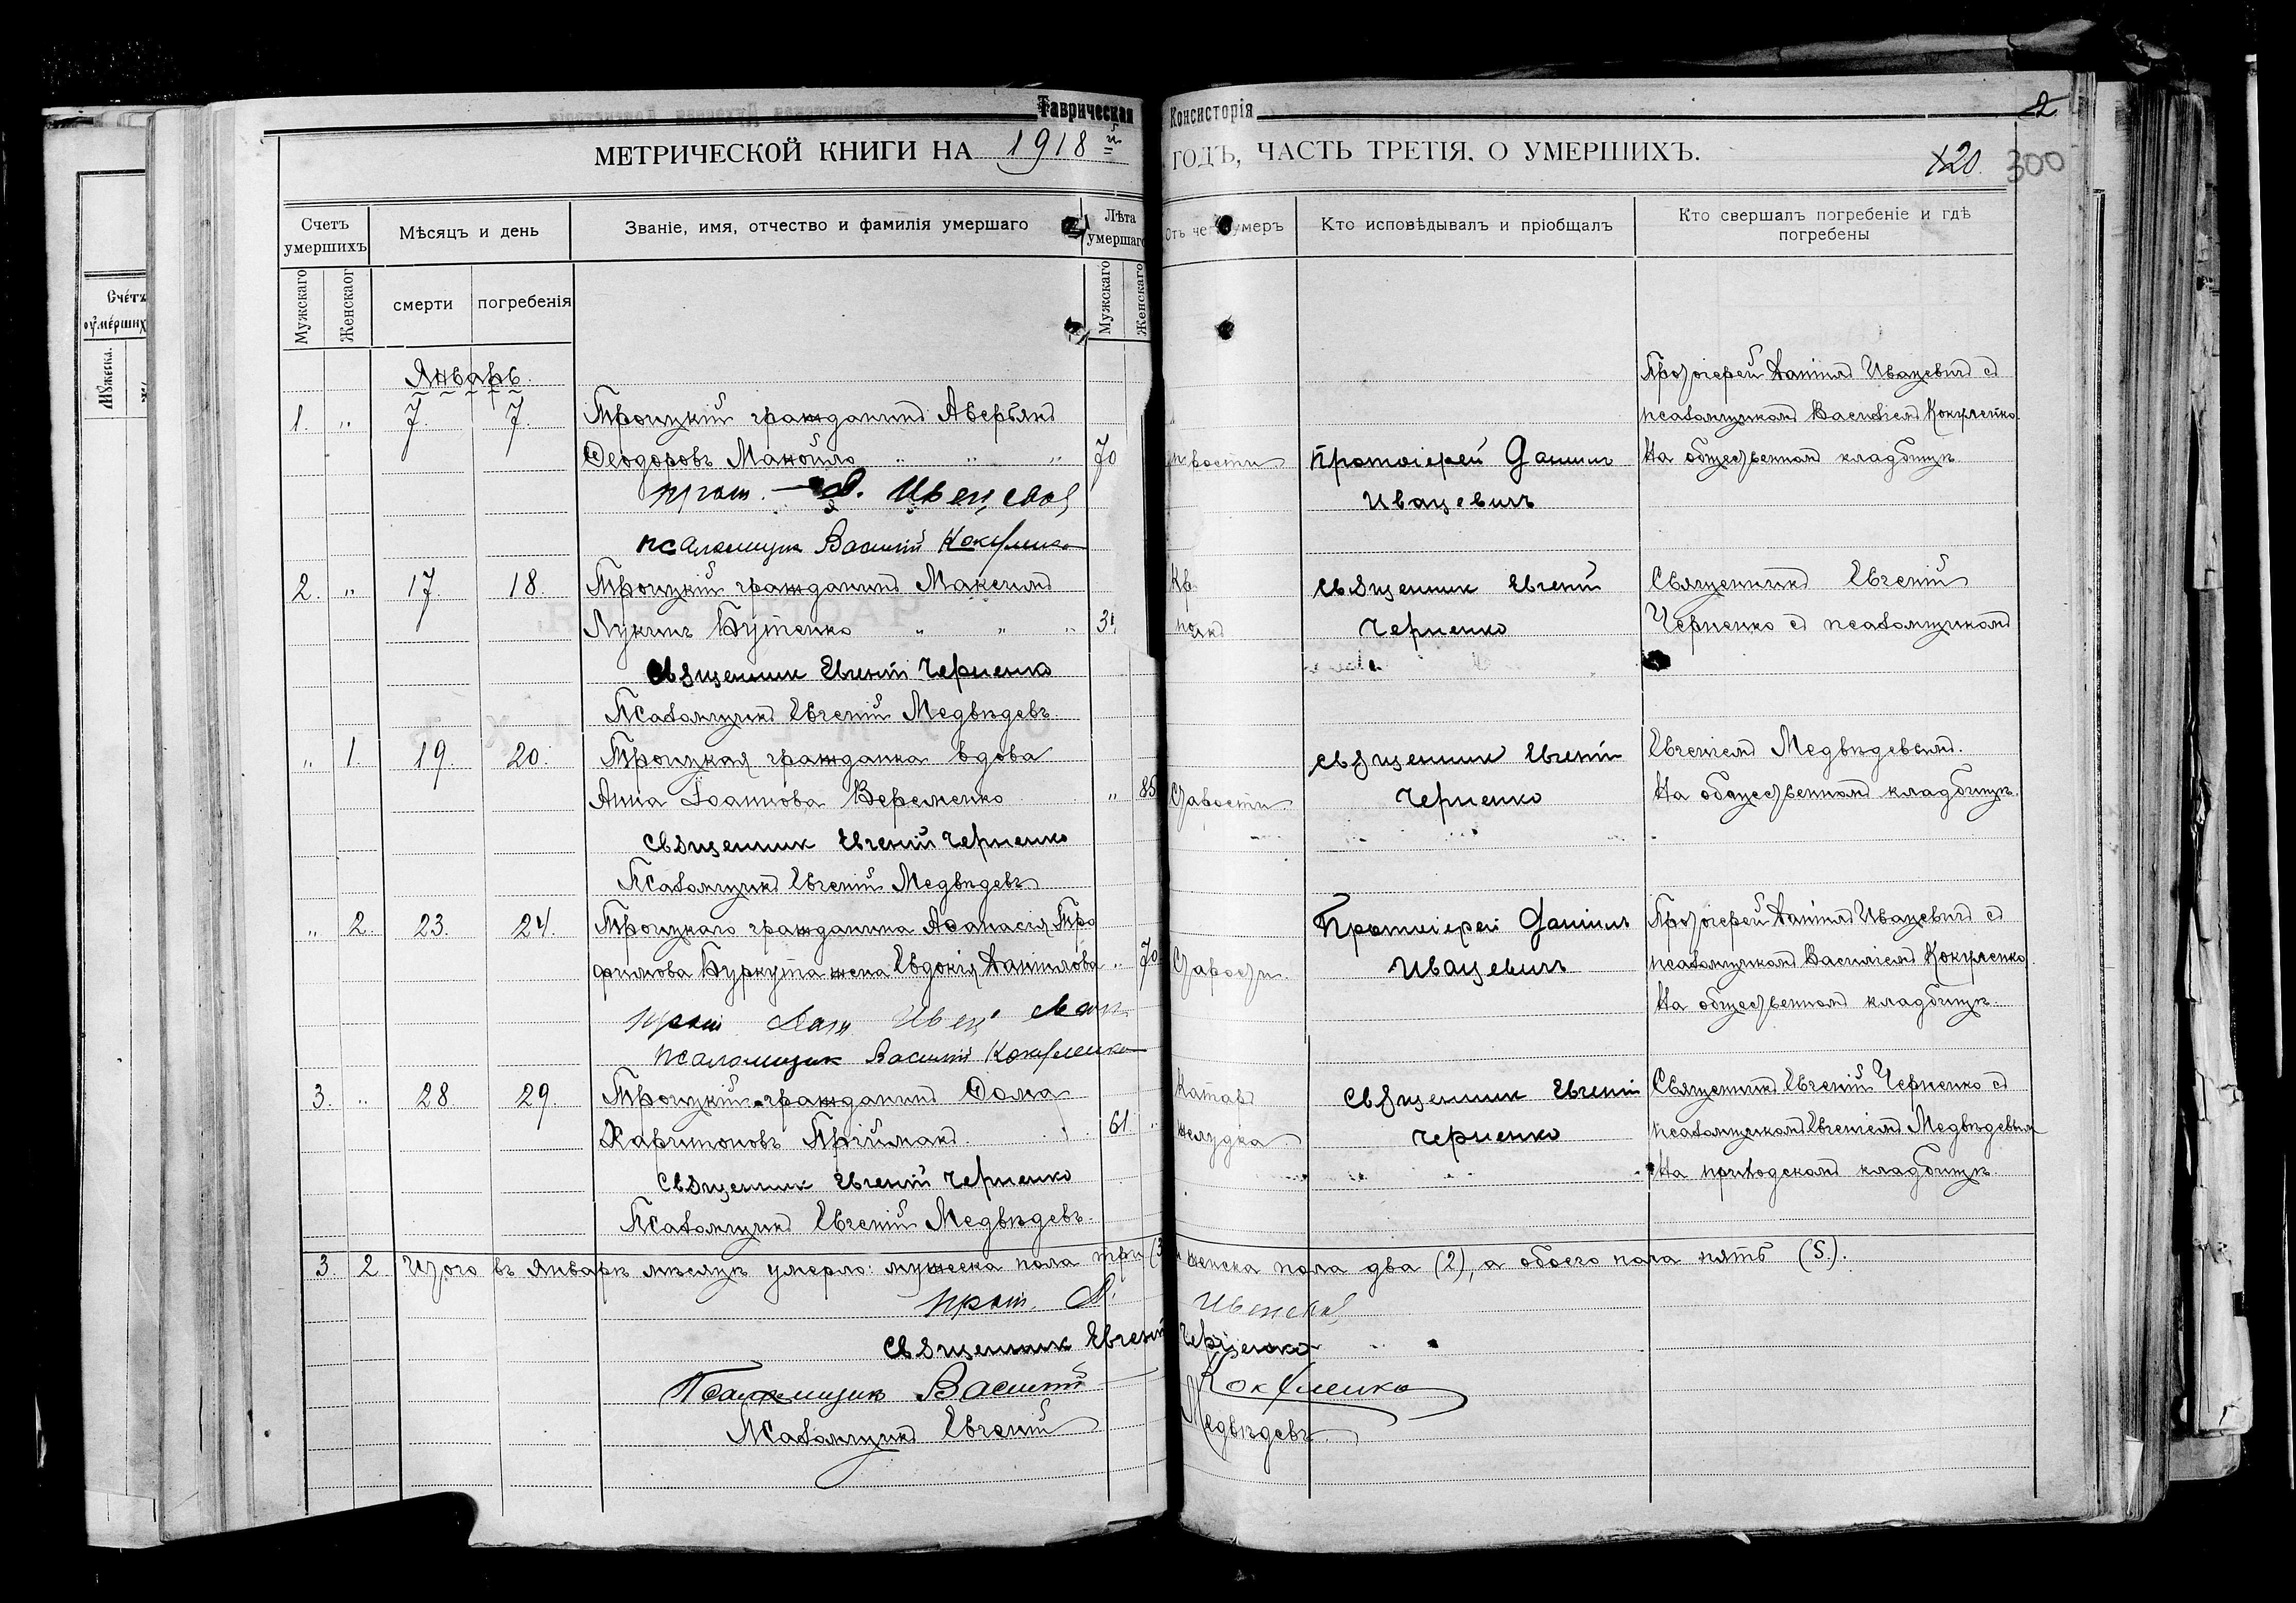 Таврическая Консисторія
2
МЕТРИЧЕСКОЙ КНИГИ НА 1918й ГОДЪ, ЧАСТЬ ТРЕТІЯ, О УМЕРШИХЪ.
120. 300
Счетъ умершихъ
Мѣсяцъ и день
Званіе, имя, отчество и фамилія умершаго
Лѣта умершаго
Отъ че умеръ
Кто исповѣдывалъ и пріобщалъ
Кто свершалъ погребеніе и гдѣ погребены
Мужскаго
Женскаог
смерти
погребенія
Мужскаго
Женскаго
Январь.
1. " 7. 7. Троицкій гражданинъ Аверьянъ
Ѳеодоровъ Манойло " " " 70
прот. Д. Иващевичъ
псаломщик Василій Кокуленко
Протоіерей Даніилъ
Иващевичъ
Протоіерей Даніилъ Иващевичъ съ
псаломщикомъ Василіемъ Кокуленко.
На общественномъ кладбищѣ
2. " 17. 18. Троицкій гражданинъ Максимъ
Лукинъ Бутенко " " "
Священник Евгеній Черненко
Псаломщикъ Евгеній Медвѣдевъ.
Священник Евгеній
Черненко
Священникъ Евгеній
Черненко съ псаломщикомъ
" 1. 19. 20. Троицкая гражданка вдова
Анна Іоаннова Веременко " 85
Священник Евгеній Черненко
Псаломщикъ Евгеній Медвѣдевъ
Старости
Священник Евгеній
Черненко
Евгеніемъ Медвѣдевымъ.
На общественномъ кладбищѣ.
" 2. 23. 24. Троицкаго гражданина Аѳанасія Тро
фимова Буркута жена Евдокія Даніилова " 70
псаломщик Василій Кокуленко
Старости.
Протоіерей Даніилъ
Иващевичъ
Протоіерей Даніилъ Иващевичъ съ
псаломщикомъ Василіемъ Кокуленко.
На общественномъ кладбищѣ.
3. " 28. 29. Троицкій гражданинъ Ѳома
Харитоновъ Пріймакъ. 61 "
Священник Евгеній Черненко
Псаломщикъ Евгеній Медвѣдевъ.
Катаръ
желудка
Священник Евгеній
Черненко
Священникъ Евгеній Черненко съ
псаломщикомъ Евгеніемъ Медвѣдевым
На приходскомъ кладбищѣ
3. 2. Итого въ Январѣ мѣсяцѣ умерло: мужеска пола три (3 женска пола два (2), а обоего пола пять (5.).
прот. Д. Иващевичъ
Священник Евгеній Черненко
Псаломщик Василій Кокуленко
Псаломщикъ Евгеній Медвѣдевъ
Счётъ
оумершихъ
Мꙋжеска.